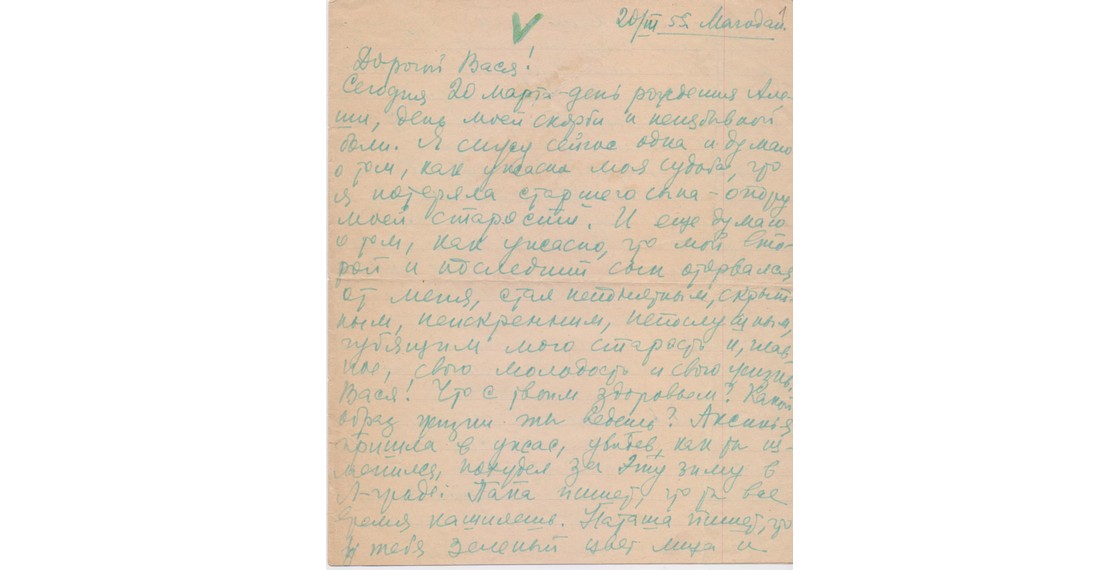 20/III 55 Магадан.
1
Дорогой Вася!
Сегодня 20 марта - день рождения Але-
ши, день моей скорби и неизбывной
боли. Я сижу сейчас одна и думаю
о том, как ужасна моя судьба, что
я потеряла старшего сына - опору
моей старости. И еще думаю
о том, как ужасно, что мой вто-
рой и последний сын оторвался
от меня, стал непонятным, скрыт-
ным, неискренним, непослушным,
губящим мою старость и, глав-
ное, свою молодость и свою жизнь.
Вася! Что с твоим здоровьем? Какой
образ жизни ты ведешь? Аксинья
пришла в ужас, увидев, как ты из-
менился, похудел за эту зиму в
Л-граде. Папа пишет, что ты все
время кашляешь. Наташа пишет, что
у тебя зеленый цвет лица и